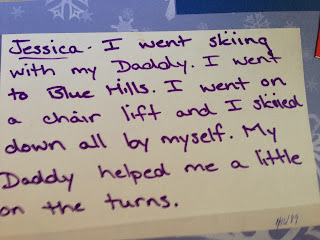 Jessica - I went skiing
with my Daddy. I went
to Blue Hills. I went on
a chair lift and I skiied
down all by myself. My
Daddy helped me a little
on the turns.